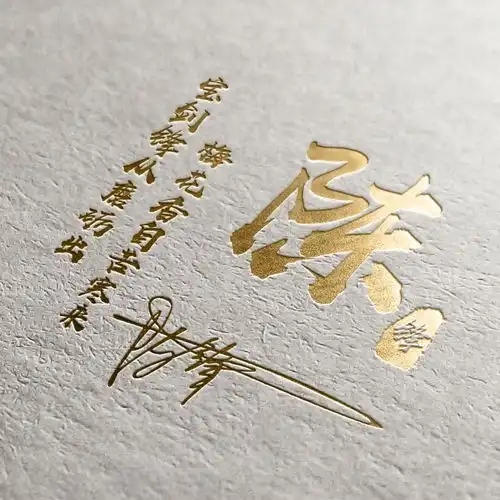 陈
宝剑锋从磨砺出
梅花香自苦寒来